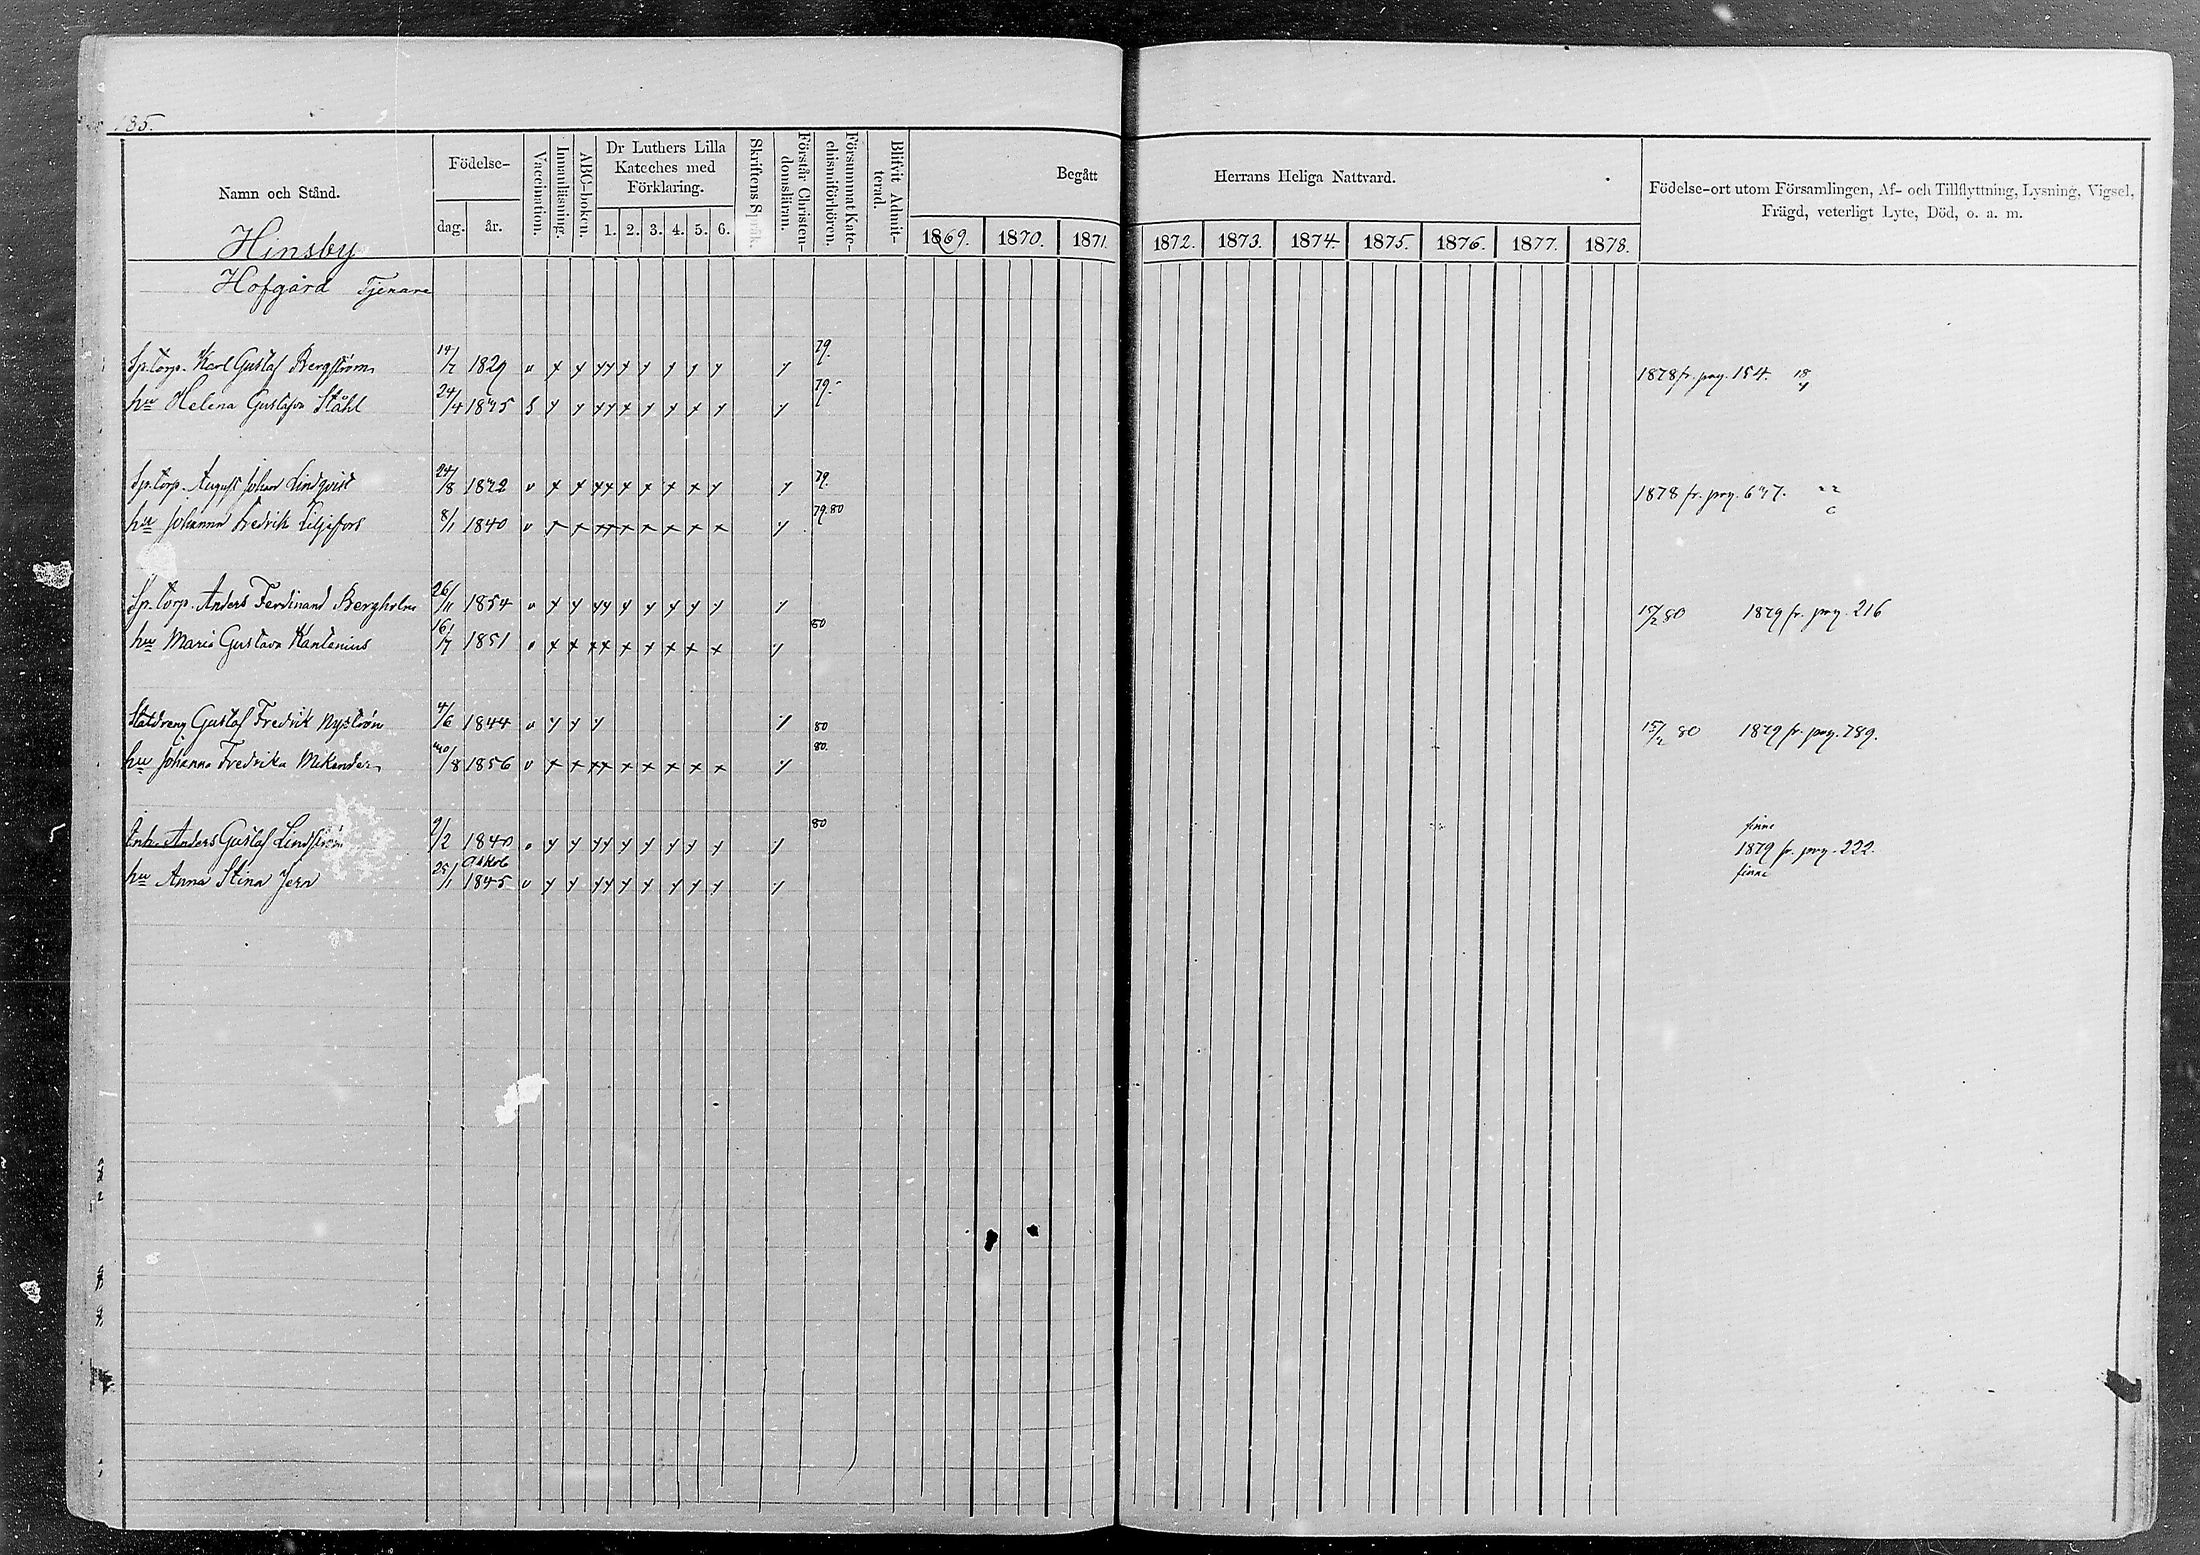 185.
Namn och Stånd.
Födelse-
dag.
år.
Vaccination.
Innanläsning.
ABC-boken.
Dr Luthers Lilla
Kateches med
Förklaring.
1. 2. 3. 4. 5. 6.
Skriftens Språk.
Förstår Christen-
domsläran.
Försummat Kate-
chismiförhören.
Blifvit Admit-
terad.
Begått
Herrans Heliga Nattvard.
1869. 1870. 1871. 1872. 1873. 1874. 1875. 1876. 1877. 1878.
Födelse-ort utom Församlingen, Af- och Tillflyttning, Lysning, Vigsel,
Frägd, veterligt Lyte, Död, o. a. m.
Hinsby
Hofgård Tjenare
Sp.torp. Karl Gustaf Bergström 1829 v 79. 1878 fr. pag. 154.
hu Helena Gustafva Ståhl 24/4 79.
Sp.torp. August Johan Lindqvist 24/8 v 79. 1878 fr. pag.
hu Johanna Fredrik Liljefors 8/1 1840 v 79.80
Sp.torp. Anders Ferdinand Bergholm 26/11 1854 v 80 1879 fr. pag. 216
hu Maria Gustava Kantenius 16/7 1851 80
Statdreng Gustaf Fredrik Nyström 4/6 1844 v 80 15/2 80 1879 fr. pag. 789.
hu Johanna Fredrika Mikander 1856 v 80.
finne
Inh. Anders Gustaf Lindström 9/2 1840 80 1879 fr. pag. 222.
hu Anna Stina Jern 25/1 1845 v finne